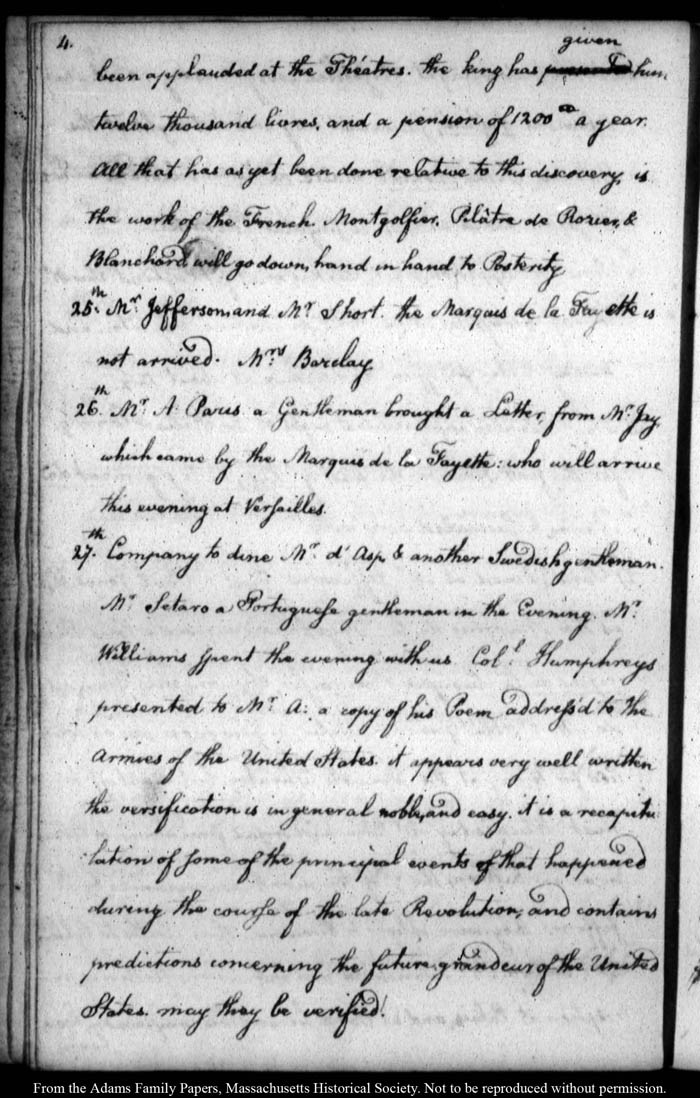 4.
given
been applauded at the Théatres. the king has presented him
twelve thousand livres, and a pension of 1200 a year.
All that has as yet been done relative to this discovery, is
the work of the French. Montgolfier, Pilâtre de Rozier, &
Blanchard will go down, hand in hand to Posterity
25.th Mr. Jefferson and Mr. Short. the Marquis de la Fayette is
not arrived. Mrs. Barclay
26.th Mr. A. Paris. a Gentleman brought a Letter, from Mr. Jay,
which came by the Marquis de la Fayette: who will arrive
this evening at Versailles.
27.th Company to dine Mr. d'Asp, & another Swedish gentleman.
Mr. Setaro a Portuguese gentleman in the Evening. Mr.
Williams spent the evening with us Col.l Humphreys
presented to Mr. A: a copy of his Poem address'd to the
Armies of the United States. it appears very well written
the versification is in general noble, and easy. it is a recapitu
lation of some of the principal events of that happened
during the course of the late Revolution, and contains
predictions concerning the future grandeur of the United
States. may they be verified!
From the Adams Family Papers, Massachusetts Historical Society. Not to be reproduced without permission.